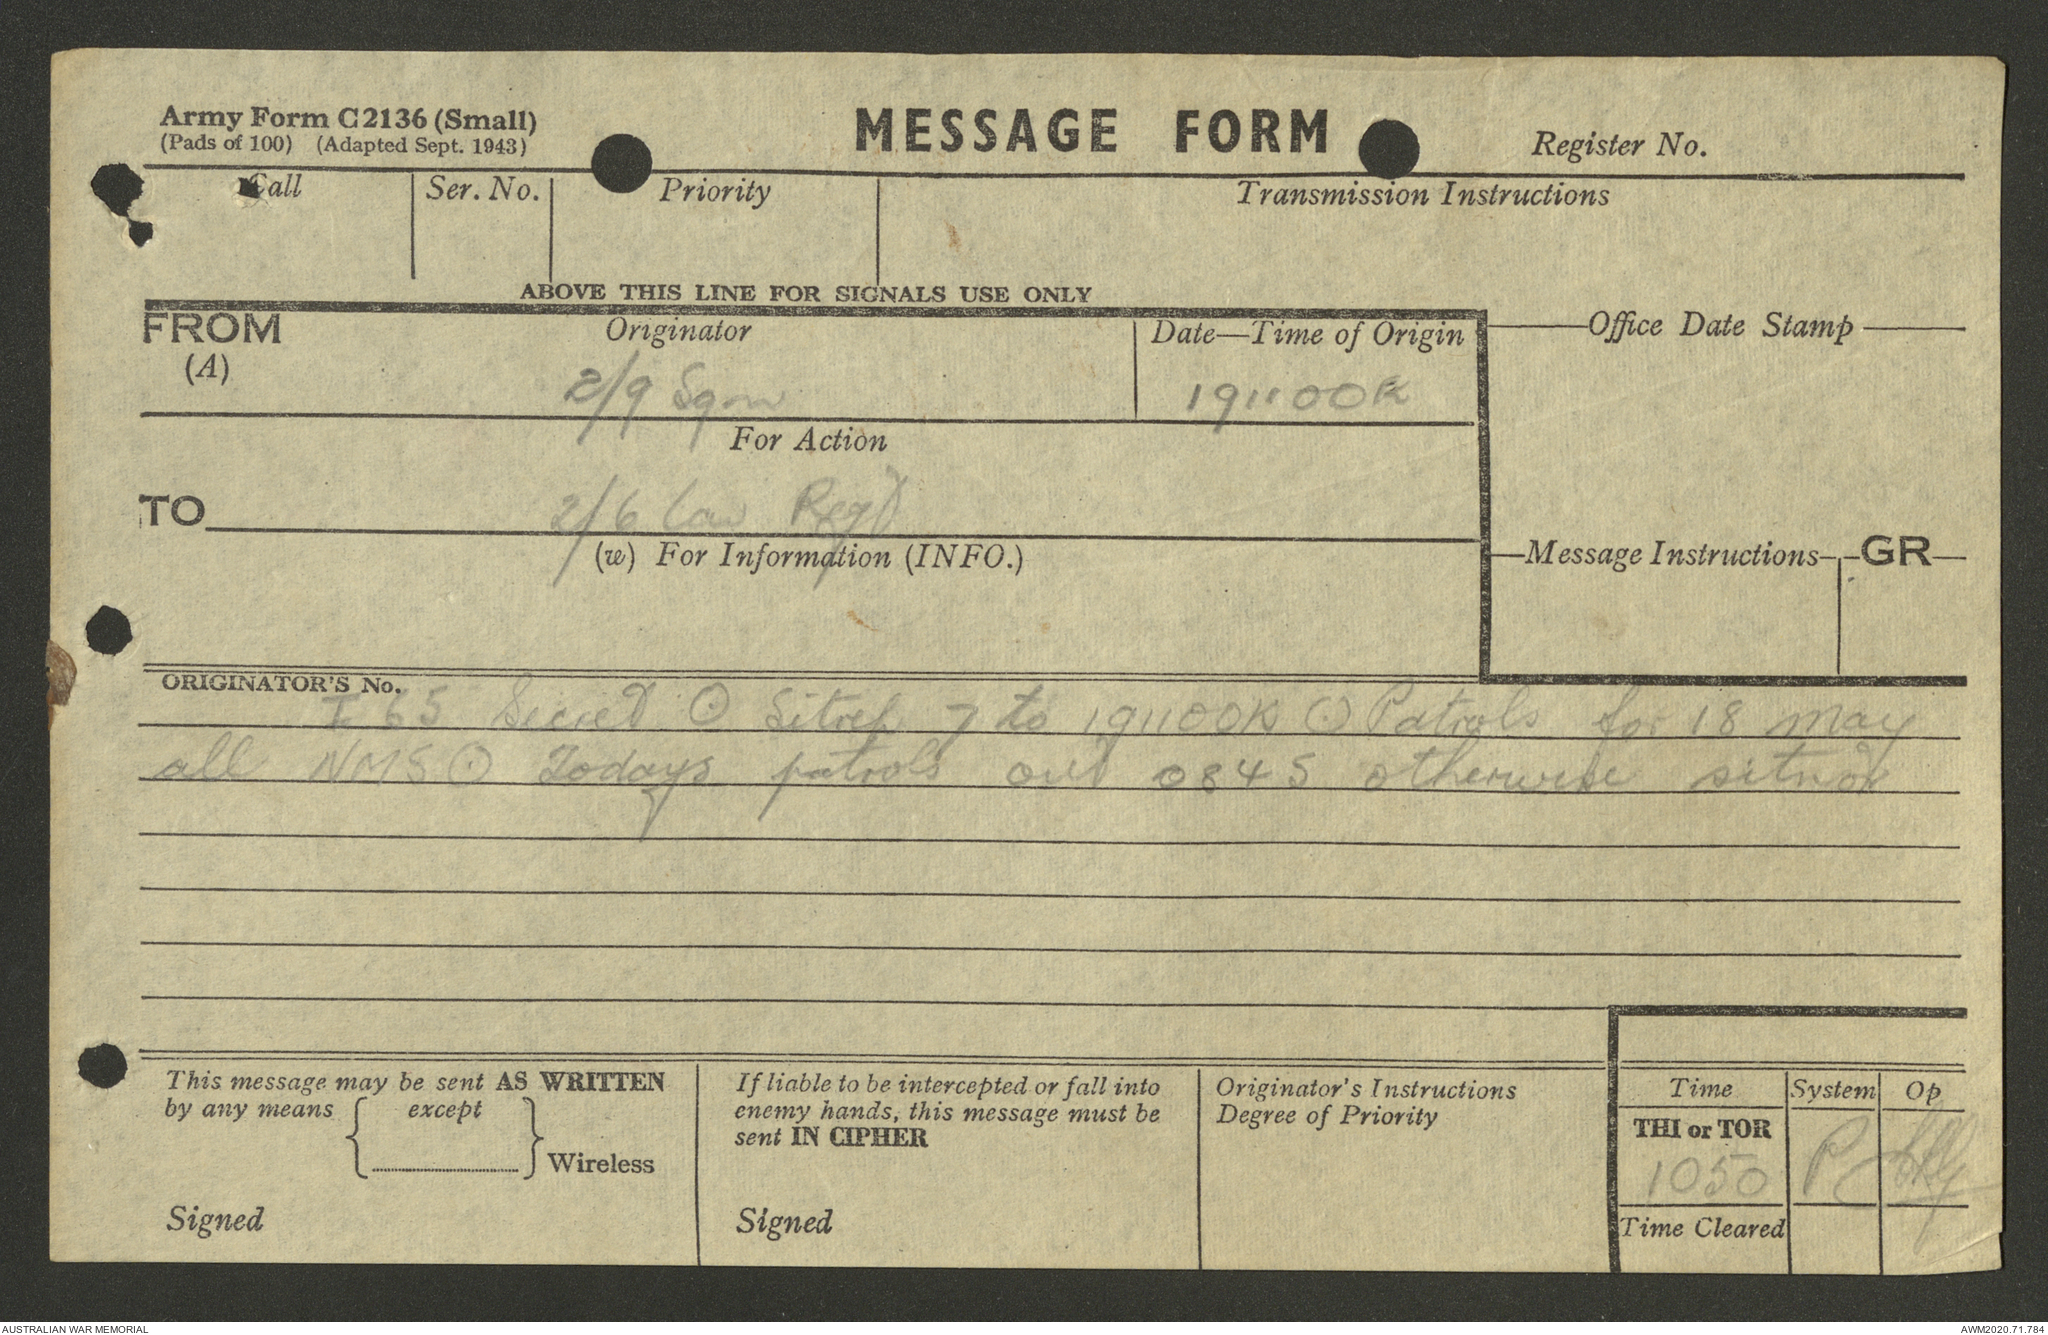 Army Form C2136 (Small)
(Pads of 100) (Adapted Sept. 1943)
MESSAGE FORM
Register No.
Call
Ser. No.
Priority
Transmission Instructions
ABOVE THIS LINE FOR SIGNALS USE ONLY
FROM
(A)
Originator
2/9 Sqn
Date—Time of Origin
191100K
Office Date Stamp
For Action
TO
2/6 Cav Regt
(w) For Information (INFO.)
Message Instructions
GR
ORIGINATOR'S No.
I 65 Secret ⊙ Sitrep 7 to 191100K ⊙ Patrols for 18 May
all NMS ⊙ Todays patrols out 0845 otherwise sitnor
This message may be sent AS WRITTEN
by any means { except }
Wireless
Signed
If liable to be intercepted or fall into
enemy hands, this message must be
sent IN CIPHER
Signed
Originator's Instructions
Degree of Priority
Time
System
Op
THI or TOR
1050
P
Time Cleared
AUSTRALIAN WAR MEMORIAL
AWM2020.71.784